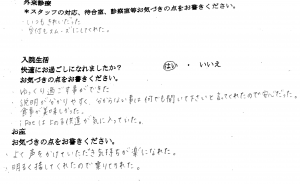 外来診療
*スタッフの対応、待合室、診察室等お気づきの点をお書きください。
・いつもきれいだった
・受付もスムーズにしてくれた。
入院生活
快適にお過ごしになれましたか? はい ・ いいえ
お気づきの点をお書きください。
・ゆっくり過ごす事ができた
・説明が分かりやすく、分からない事は何でも聞いて下さいと言ってくれたので安心だった。
・食事が美味しかった。
お産
お気づきの点をお書きください。
・よく声をかけていただき気持ちが楽になれた。
・明るく接してくれたので